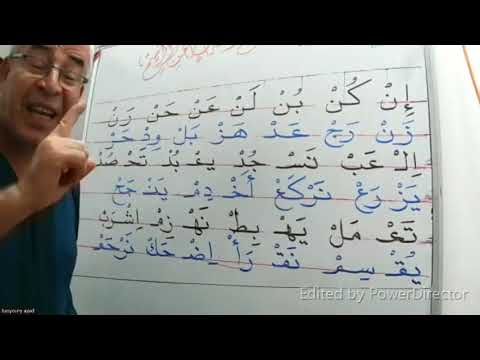 إِنْ كُنْ بُنْ لَنْ عَنْ حَنْ رَنْ
زَنْ رَجْ عَدْ هَزْ بَلْ وِدْ
عَبْ نَسْـ جُدْ يَعْـ بُدْ تَحْـ
يَزْ رَعْ تَرْ كَعْ أَخْـ دِمْ يَنْـ جَحْ
تَعْـ مَلْ يَهْـ بِطْ نَهْـ زِمْ اِشْرَبْ
سِمْ نَقْـ رَأْ اِضْـ حَكْ
Edited by PowerDirector